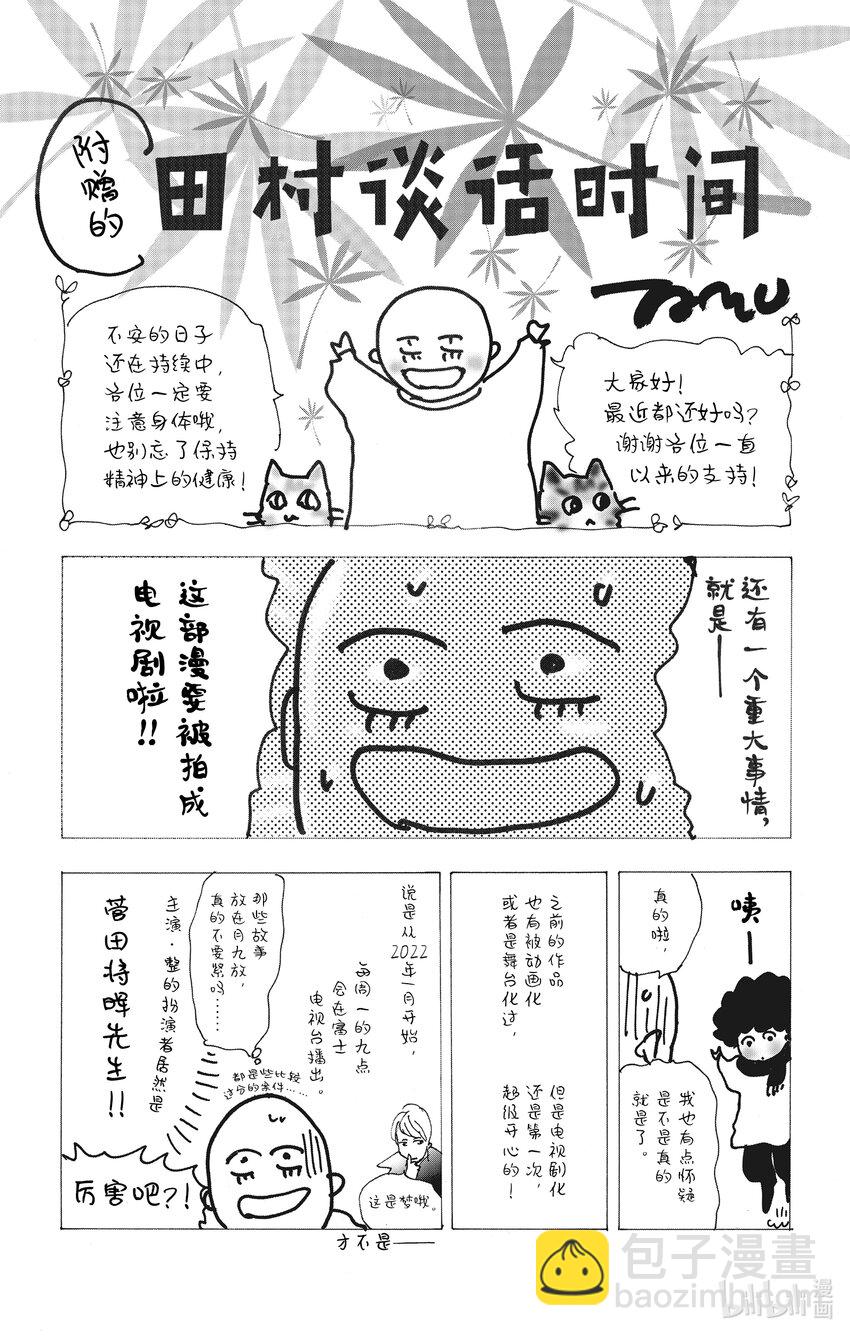 附赠的
田村谈话时间
大家好！
最近都还好吗？
谢谢各位一直
以来的支持！
不安的日子
还在持续中，
各位一定要
注意身体哦，
也别忘了保持
精神上的健康！
还有一个重大事情，
就是——
这部漫要被拍成
电视剧啦！！
咦—
真的啦，
我也有点怀疑
是不是真的
就是了。
之前的作品
也有被动画化
或者是舞台化过，
但是电视剧化
还是第一次，
超级开心的！
说是从
2022年一月开始，
每周一的九点
会在富士
电视台播出。
这是梦哦。
才不是——
那些故事
放在月九放，
真的不要紧吗……
都是些比较
过分的案件……
主演·整的扮演者居然是
菅田将晖先生！！
厉害吧？！
包子漫畫
baozimh.com
BiliBili漫画